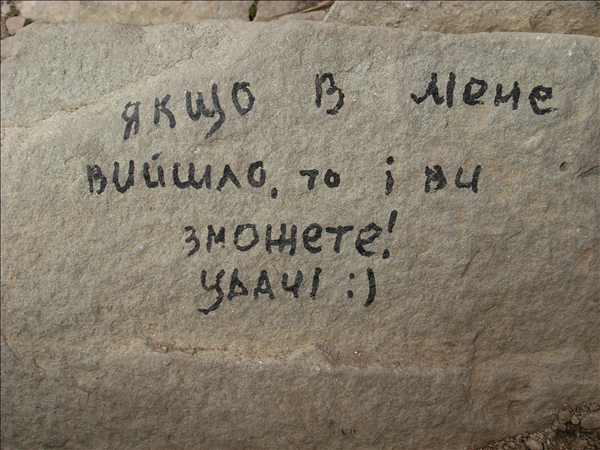 якщо в мене
вийшло, то і ви
зможете!
удачі :)